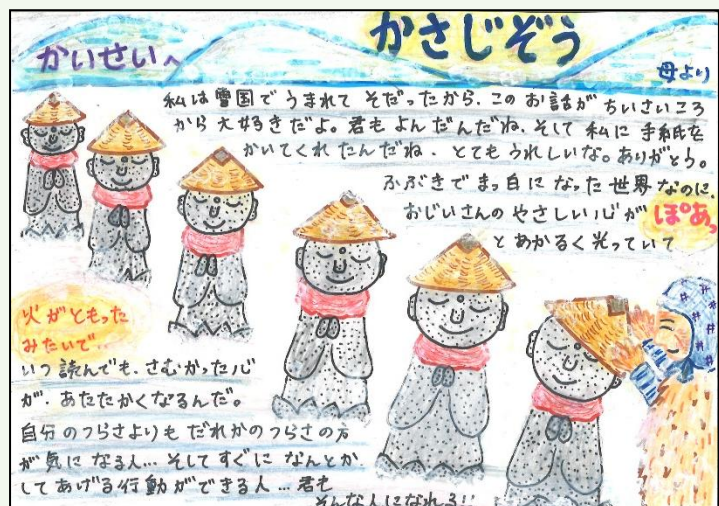 かさじぞう
かいせいへ
母より
私は雪国でうまれてそだったから、このお話がちいさいころ
から大好きだよ。君もよんだんだね、そして私に手紙を
かいてくれたんだね、とてもうれしいな。ありがとう。
ふぶきでまっ白になった世界なのに、
おじいさんのやさしい心がぽあっ
とあかるく光っていて
火がともった
みたいで…
いつ読んでも、さむかった心
が、あたたかくなるんだ。
自分のつらさよりもだれかのつらさの方
が気になる人…そしてすぐになんとか
してあげる行動ができる人…君も
そんな人になれる!!